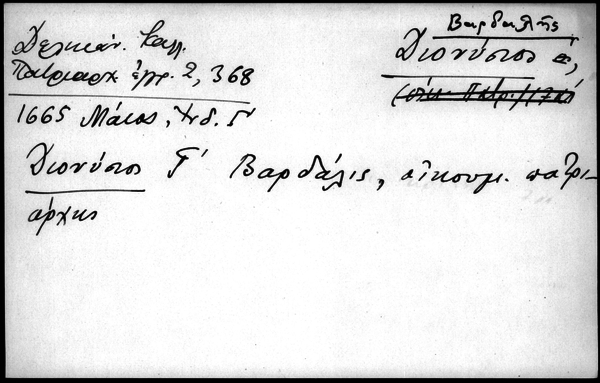 Δελικάν. Καλλ.
Πατριαρχ. ἔγγρ. 2, 368
1665 Μάιος, Ἰνδ. Γ΄
Βαρδαλῆς
Διονύσιος
Διονύσιος Γ΄ Βαρδάλις, οἰκουμ. πατρι-
άρχης